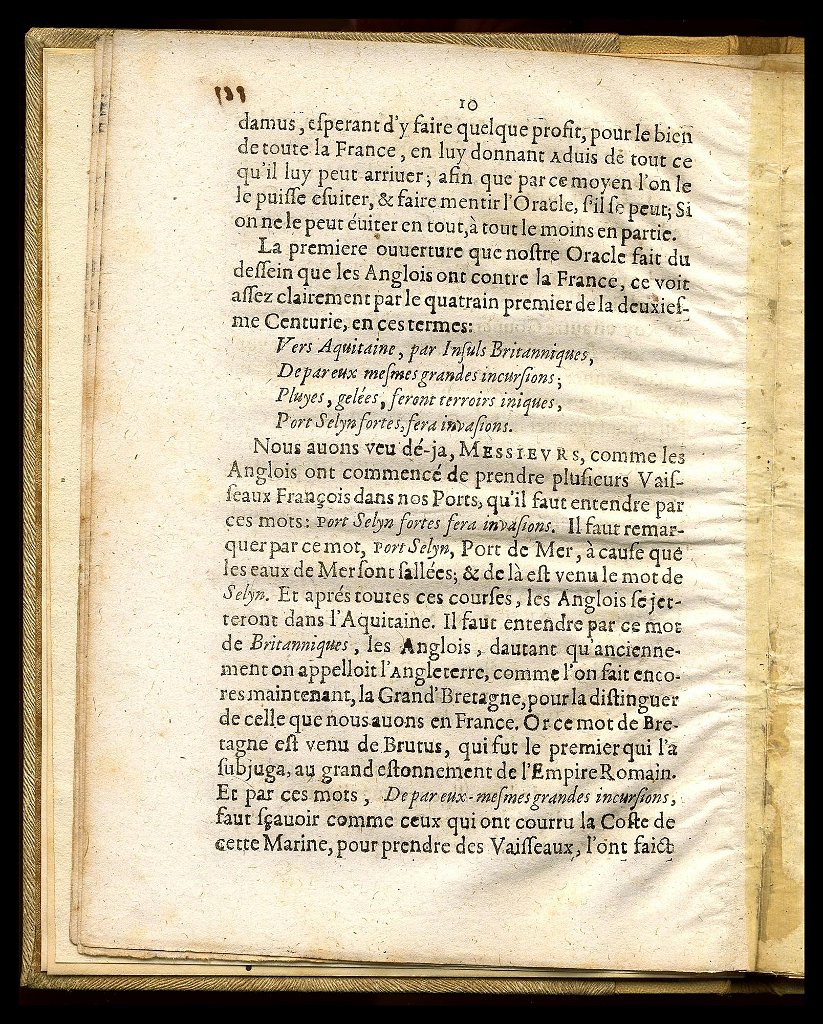 10
damus, eſperant d'y faire quelque profit, pour le bien
de toute la France, en luy donnant Aduis de tout ce
qu'il luy peut arriuer; afin que par ce moyen l'on le
le puiſſe eſuiter, & faire mentir l'Oracle, ſ'il ſe peut; Si
on ne le peut éuiter en tout, à tout le moins en partie.
La premiere ouuerture que noſtre Oracle fait du
deſſein que les Anglois ont contre la France, ce voit
aſſez clairement par le quatrain premier de la deuxieſ-
me Centurie, en ces termes:
Vers Aquitaine, par Inſuls Britanniques,
De par eux meſmes grandes incurſions;
Pluyes, gelées, ſeront terroirs iniques,
Port Selyn fortes, fera invaſions.
Nous auons veu dé-ja, MESSIEVRS, comme les
Anglois ont commencé de prendre pluſieurs Vaiſ-
ſeaux François dans nos Ports, qu'il faut entendre par
ces mots: Port Selyn fortes fera invaſions. Il faut remar-
quer par ce mot, Port Selyn, Port de Mer, à cauſe que
les eaux de Mer ſont ſallées; & de là eſt venu le mot de
Selyn. Et aprés toutes ces courſes, les Anglois ſe jet-
teront dans l'Aquitaine. Il faut entendre par ce mot
de Britanniques, les Anglois, dautant qu'ancienne-
ment on appelloit l'Angleterre, comme l'on fait enco-
res maintenant, la Grand' Bretagne, pour la diſtinguer
de celle que nous auons en France. Or ce mot de Bre-
tagne eſt venu de Brutus, qui fut le premier qui l'a
ſubjuga, au grand eſtonnement de l'Empire Romain.
Et par ces mots, De par eux-meſmes grandes incurſions,
faut ſçauoir comme ceux qui ont courru la Coſte de
cette Marine, pour prendre des Vaiſſeaux, l'ont faict